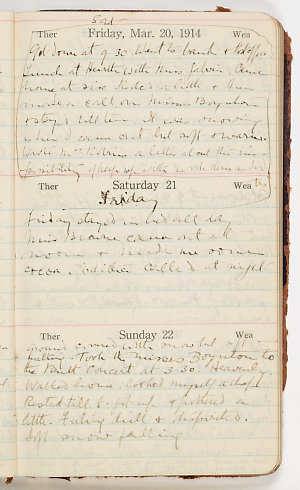 Sat
Ther Friday, Mar. 20, 1914 Wea
Got down at 9.30. Went to bank &
Lunch at Hearth with Miss Galvin. Came
home at six. Rested a little & then
made a call on Misses Boynton
& stayed till ten. It was snowing
when I came out but soft & warm.
Wrote Mrs. Robins a letter about the im-
possibility of keeping up with
Ther Saturday 21 Wea
Friday
Friday stayed in bed all day
Miss Braine came out at
noon & made me some
cocoa. called at night
Ther Sunday 22 Wea
Ground covered with snow but soft &
melting. Took the Misses Boynton to
the Concert at 3.30. Heavenly.
Walked home. Cooked myself a chop.
Rested till 8. got up & pottered a
little. Feeling dull & dispirited.
Soft snow falling.